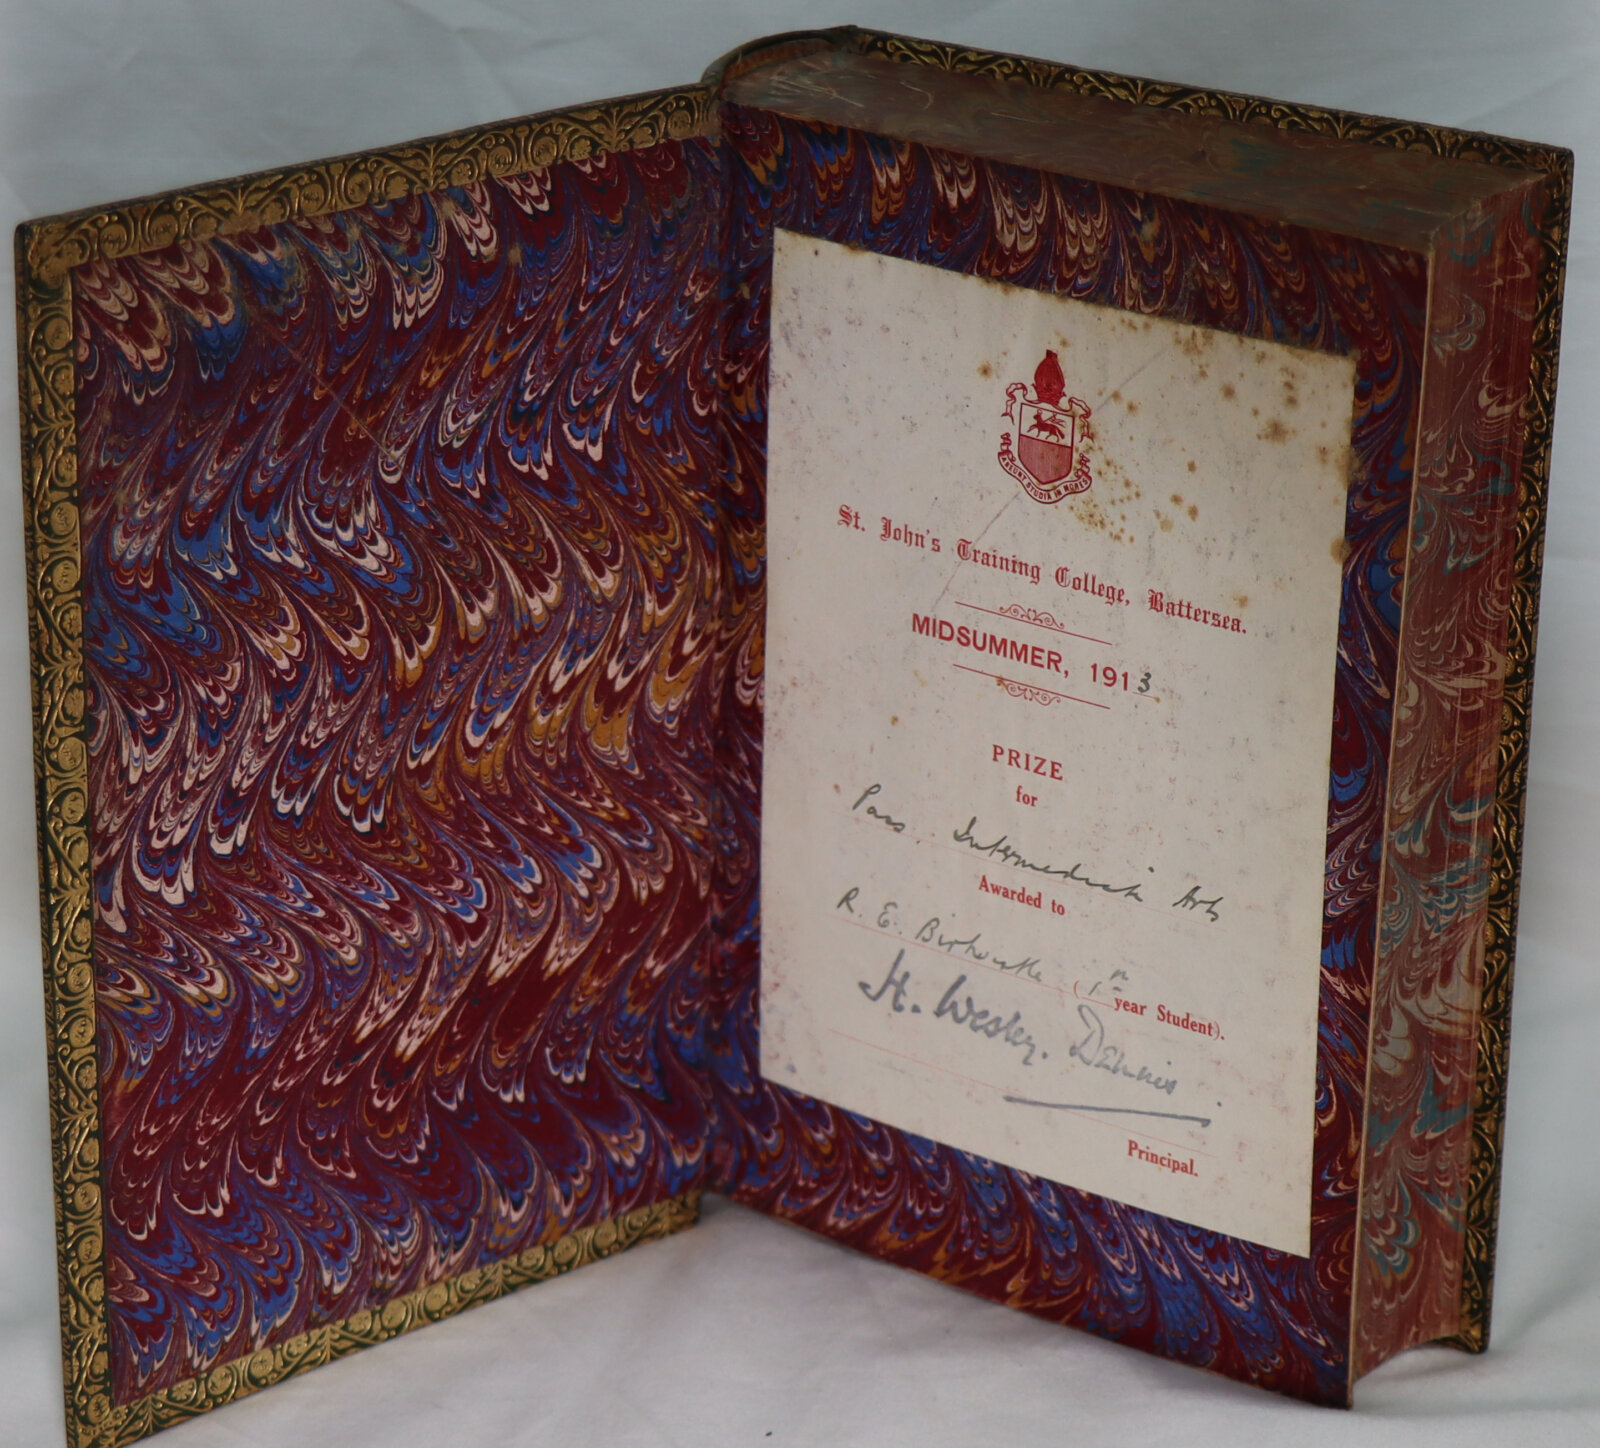 ABEUNT STUDIA IN MORES
St. John's Training College, Battersea.
MIDSUMMER, 1913
PRIZE
for
Pass. Intermediate Arts
Awarded to
R. E. (1st year Student).
H. Wesley. Dennis
Principal.